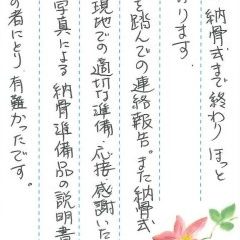 納骨式まで終わり ほっと
ります.
を踏んでの連絡報告。また納骨式
現地での適切な準備・応接 感謝いた
写真による 納骨準備品の説明書
の者にとり 有難かったです。